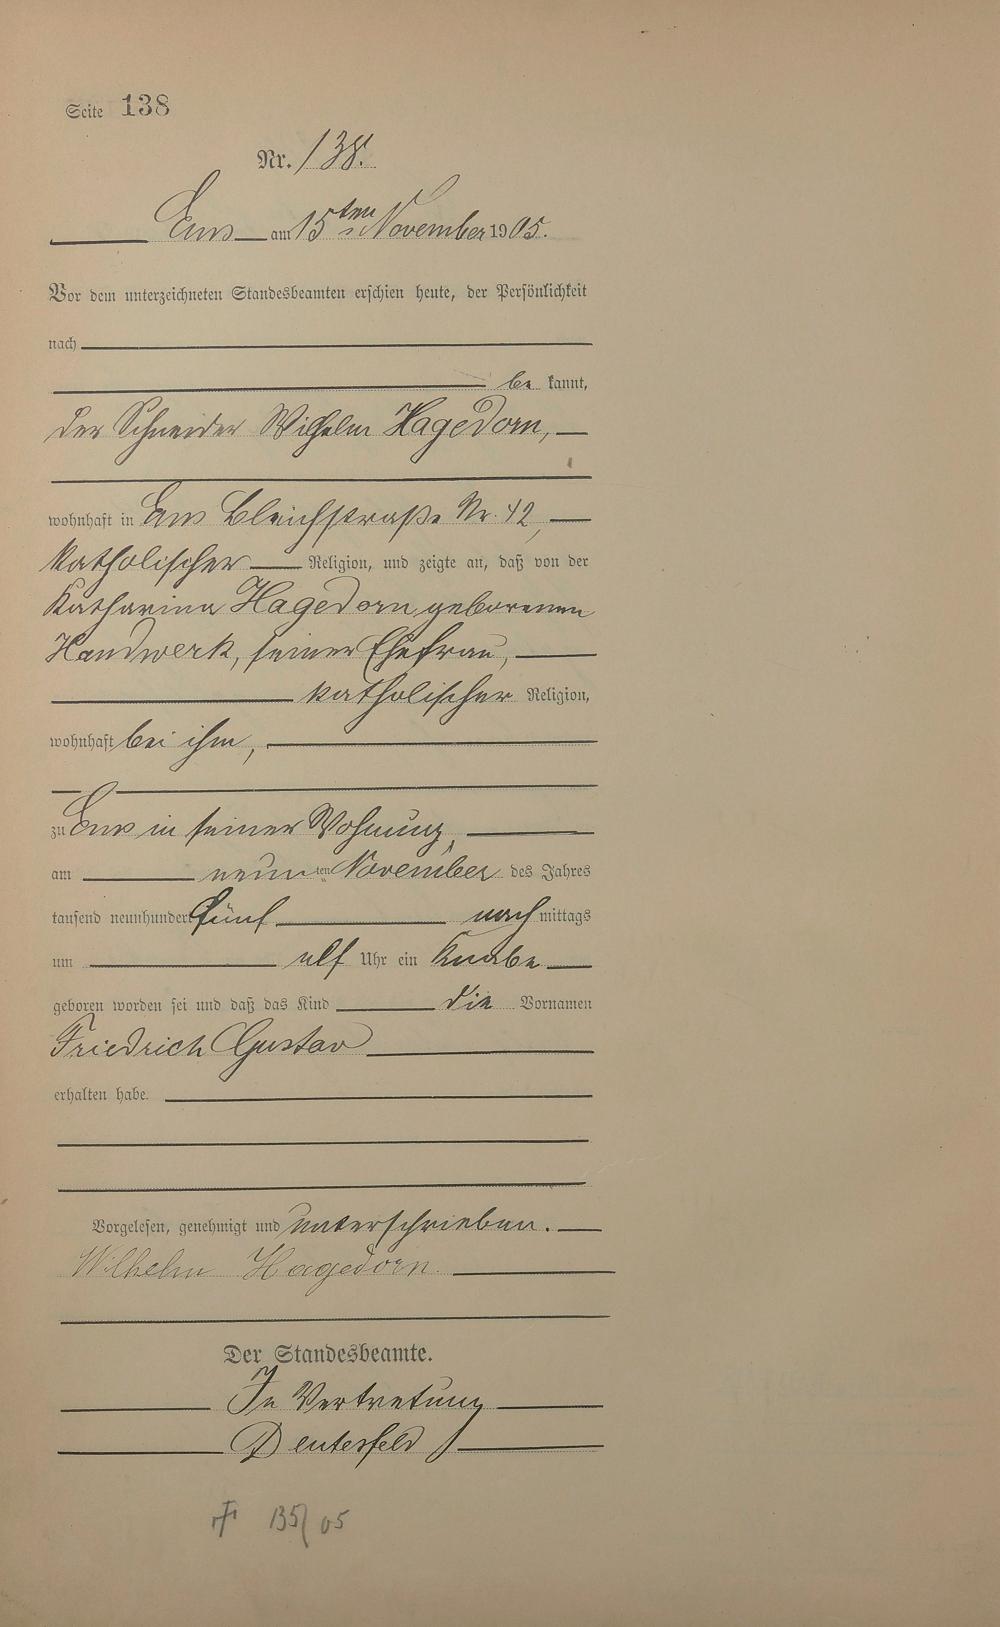 Seite 138
Nr. 138.
Ems am 15ten November 1905.
Vor dem unterzeichneten Standesbeamten erschien heute, der Persönlichkeit
nach
be kannt,
der Schneider Wilhelm Hagedorn,
wohnhaft in Ems Bleichstraße Nr. 42,
katholischer Religion, und zeigte an, daß von der
Katharina Hagedorn geborenen
Handwerk, seiner Ehefrau,
katholischer Religion,
wohnhaft bei ihm,
zu Ems in seiner Wohnung,
am neunten November des Jahres
tausend neunhundert fünf nach mittags
um elf Uhr ein Knabe
geboren worden sei und daß das Kind die Vornamen
Friedrich Gustav
erhalten habe.
Vorgelesen, genehmigt und unterschrieben.
Wilhelm Hagedorn.
Der Standesbeamte.
In Vertretung
135/05